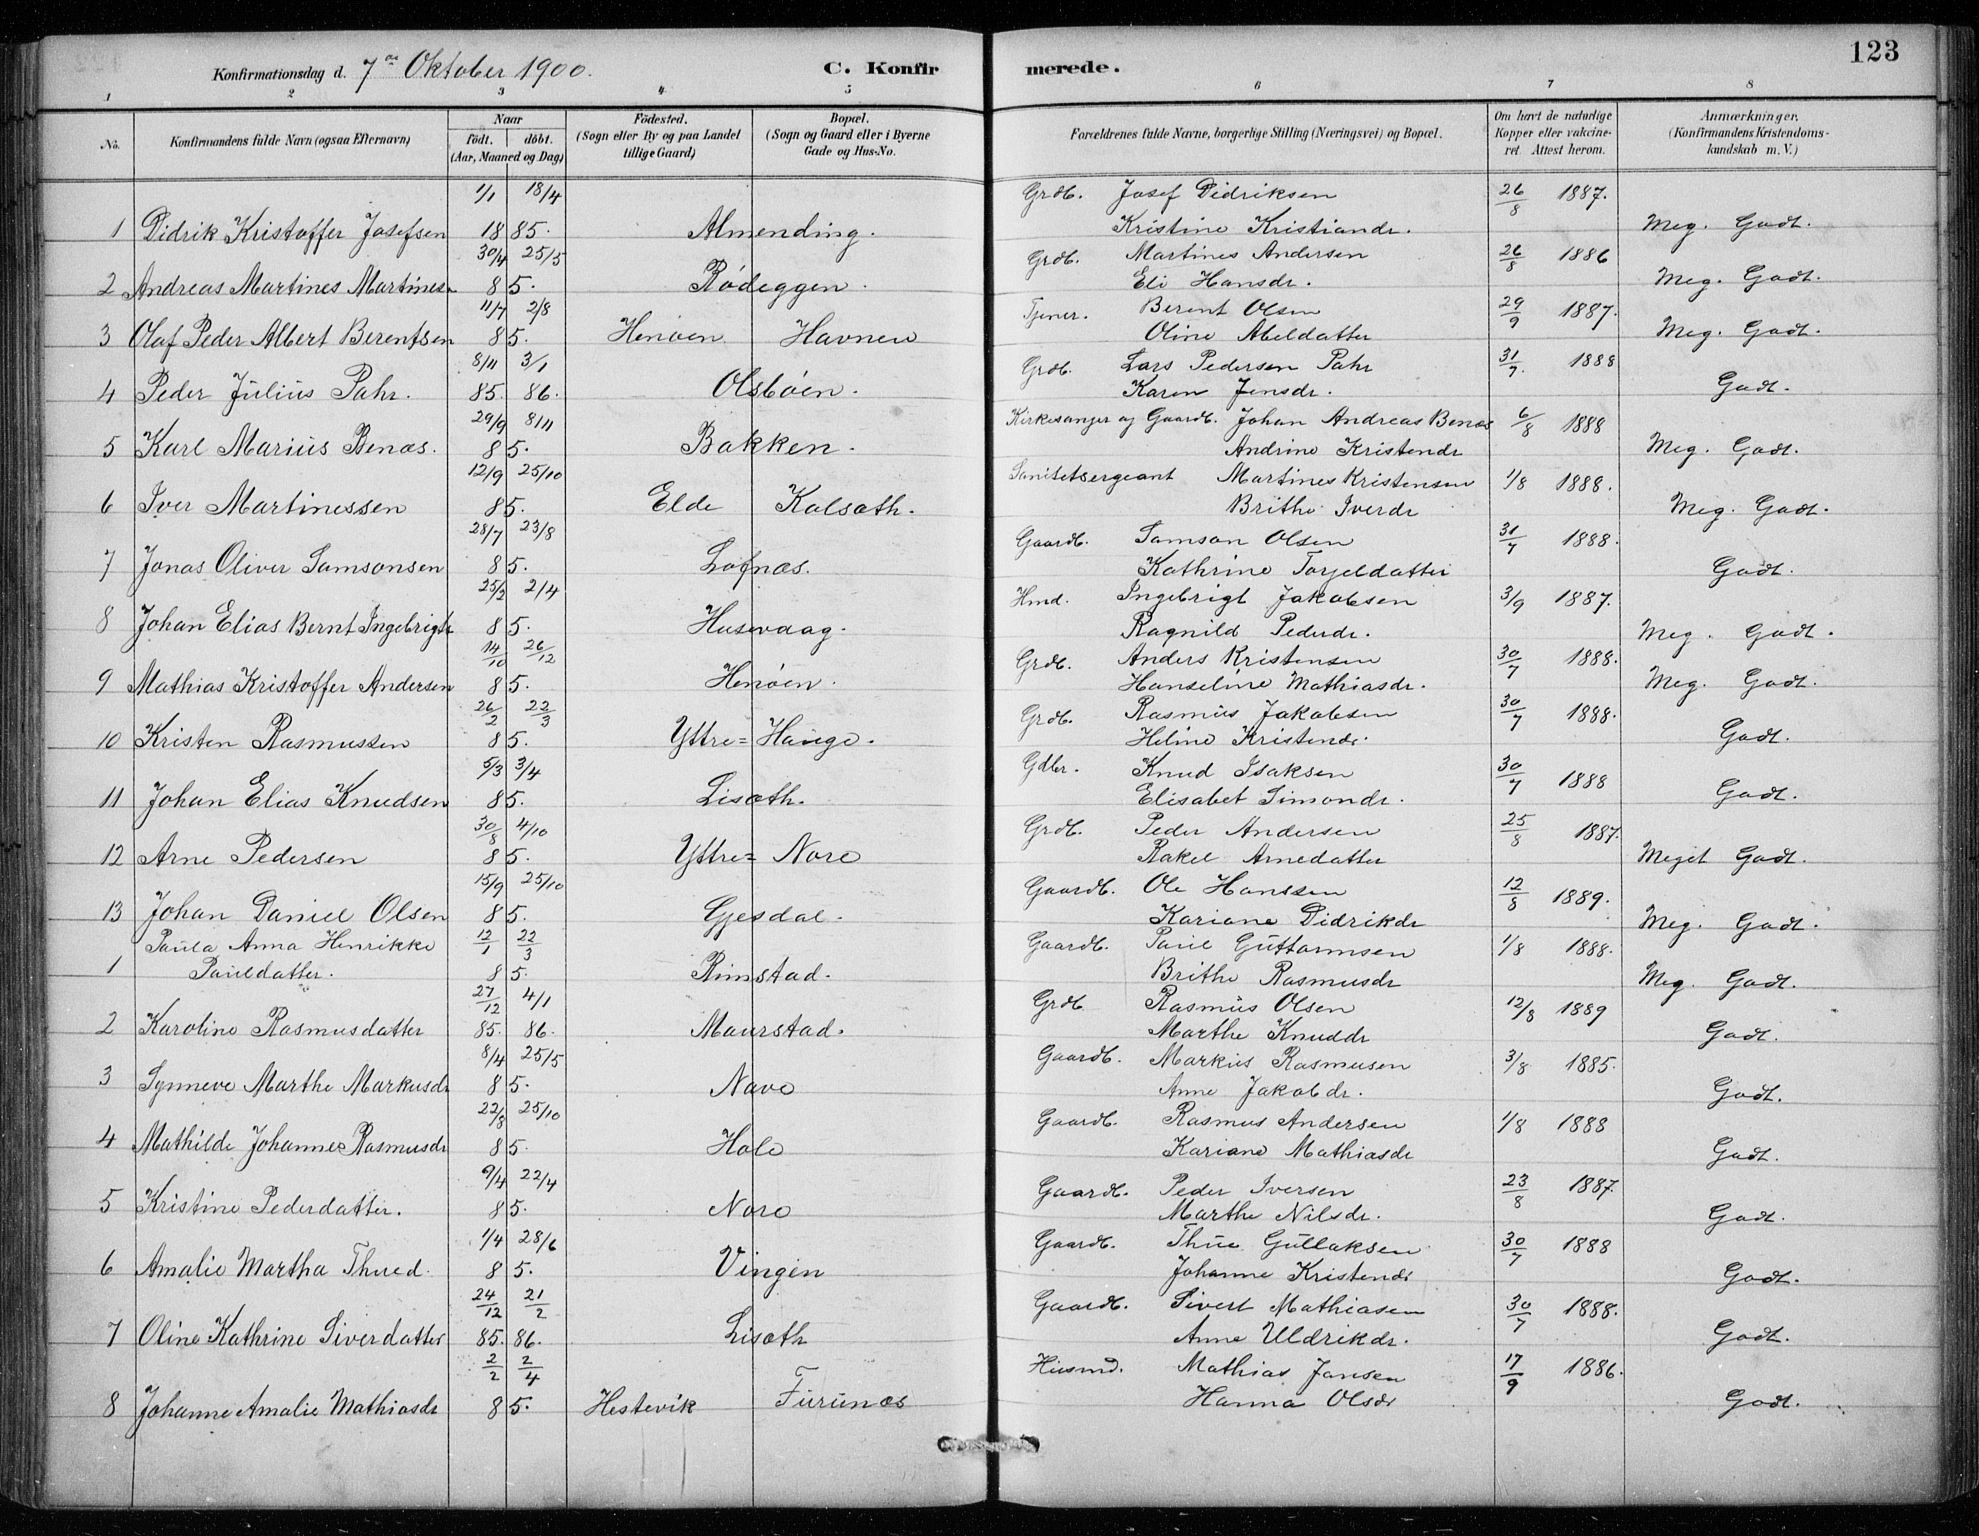 Konfirmationsdag d. 7de Oktober 1900. C. Konfirmerede. 123
1 2 3 4 5 6 7 8
No. Konfirmandens fulde Navn (ogsaa Efternavn) Naar födt. döbt. (Aar, Maaned og Dag) Födested. (Sogn eller By og paa Landet tillige Gaard) Bopæl. (Sogn og Gaard eller i Byerne Gade og Hus-No. Forældrenes fulde Navne, borgerlige Stilling (Næringsvei) og Bopæl. Om havt de naturlige Kopper eller vakcineret. Attest herom. Anmærkninger. (Konfirmandens Kristendomskundskab m. V.)
1/1 18/4 Grdb. Josef Didriksen 26/8 1887.
1 Didrik Kristoffer Josefsen 1885. Almending. Kristine Kristiandr. Meg. Godt.
30/4 25/5 Grdb. Martines Andersen 26/8 1886
2 Andreas Martines Martines. 85. Rødeggen. Eli Hansdr. Meg. Godt.
11/7 2/8 Tjener. Berent Olsen 29/9 1887.
3 Olaf Peder Albert Berentsen 85. Henöen Havnen Oline Abeldatter Meg. Godt.
8/11 3/1 Grdb. Lars Pedersen Pahr 31/7. 1888
4 Peder Julius Pahr. 85. 86. Olsböen. Karen Jensdr. Godt.
29/9 8/11 Kirkesanger og Gaardb. Johan Andreas Benæs 6/8 1888
5 Karl Marius Benæs. 85. Bakken. Andrine Kristendr Meg. Godt.
12/9 25/10 Sanitetsergeant Martines Kristensen 1/8 1888.
6 Iver Martinessen 85. Elde Kalsæth. Brithe Iverdr Meg. Godt.
28/7 23/8 Gaardb. Samson Olsen 31/7 1888.
7 Jonas Oliver Samsonsen 85. Lofnæs. Kathrine Torjeldatter Godt.
25/2 2/4 Hmd. Ingebrigt Jakobsen 3/9 1887.
8 Johan Elias Bernt Ingebrigts 85. Husevaag. Ragnild Pederdr. Meg. Godt.
14/10 26/12 Grdb. Anders Kristensen 30/7 1888.
9 Mathias Kristoffer Andersen 85. Henöen. Hanseline Mathiasdr. Meg. Godt.
26/2 22/3 Grdb. Rasmus Jakobsen 30/7 1888.
10 Kristen Rasmussen 85. Yttre= Hauge. Heline Kristendr. Godt.
5/3 3/4 Gdbr. Knud Isaksen 30/7 1888
11 Johan Elias Knudsen 85. Lisæth. Elisabet Simondr. Godt.
30/8 4/10 Grdb. Peder Andersen 25/8 1887.
12 Arne Pedersen 85. Yttre= Nore Rakel Arnedatter Meget Godt.
15/9 25/10 Gaardb. Ole Hanssen 12/8 1889.
13 Johan Daniel Olsen 85. Gjesdal. Kariane Didrikdr Meg. Godt.
Paula Anna Henrikke 12/1 22/3 Gaardb. Paul Guttormsen 1/8 1888.
1 Pauldatter. 85. Rimstad. Brithe Rasmusdr Meg. Godt.
27/12 4/1 Grdb Rasmus Olsen 12/8 1889
2 Karoline Rasmusdatter 85. 86. Maurstad. Marthe Knuddr Godt.
8/4 25/5 Gaardb. Markus Rasmusen 3/8 1885.
3 Synneve Marthe Markusdr 85. Nave Anne Jakobdr. Godt.
22/8 25/10 Gaardb. Rasmus Andersen 1/8 1888
4 Mathilde Johanne Rasmusdr 85. Hole Kariane Mathiasdr Godt.
9/4 22/4 Gaardb. Peder Iversen 23/8 1887.
5 Kristine Pederdatter. 85. Nore Marthe Nilsdr. Godt.
1/4 28/6 Gaardb. Thue Gullaksen 30/7 1888
6 Amalie Martha Thued. 85. Vingen Johanne Kristendr Godt.
24/12 21/2 Gaardb. Sivert Mathiasen 30/7 1888.
7 Oline Kathrine Siverdatter 85. 86. Lisæth Anne Uldrikdr. Godt.
2/2 2/4 Husmd. Mathias Jansen 17/9 1886.
8 Johanne Amalie Mathiasdr 85. Hestevik Furunæs Hanna Olsdr Godt.